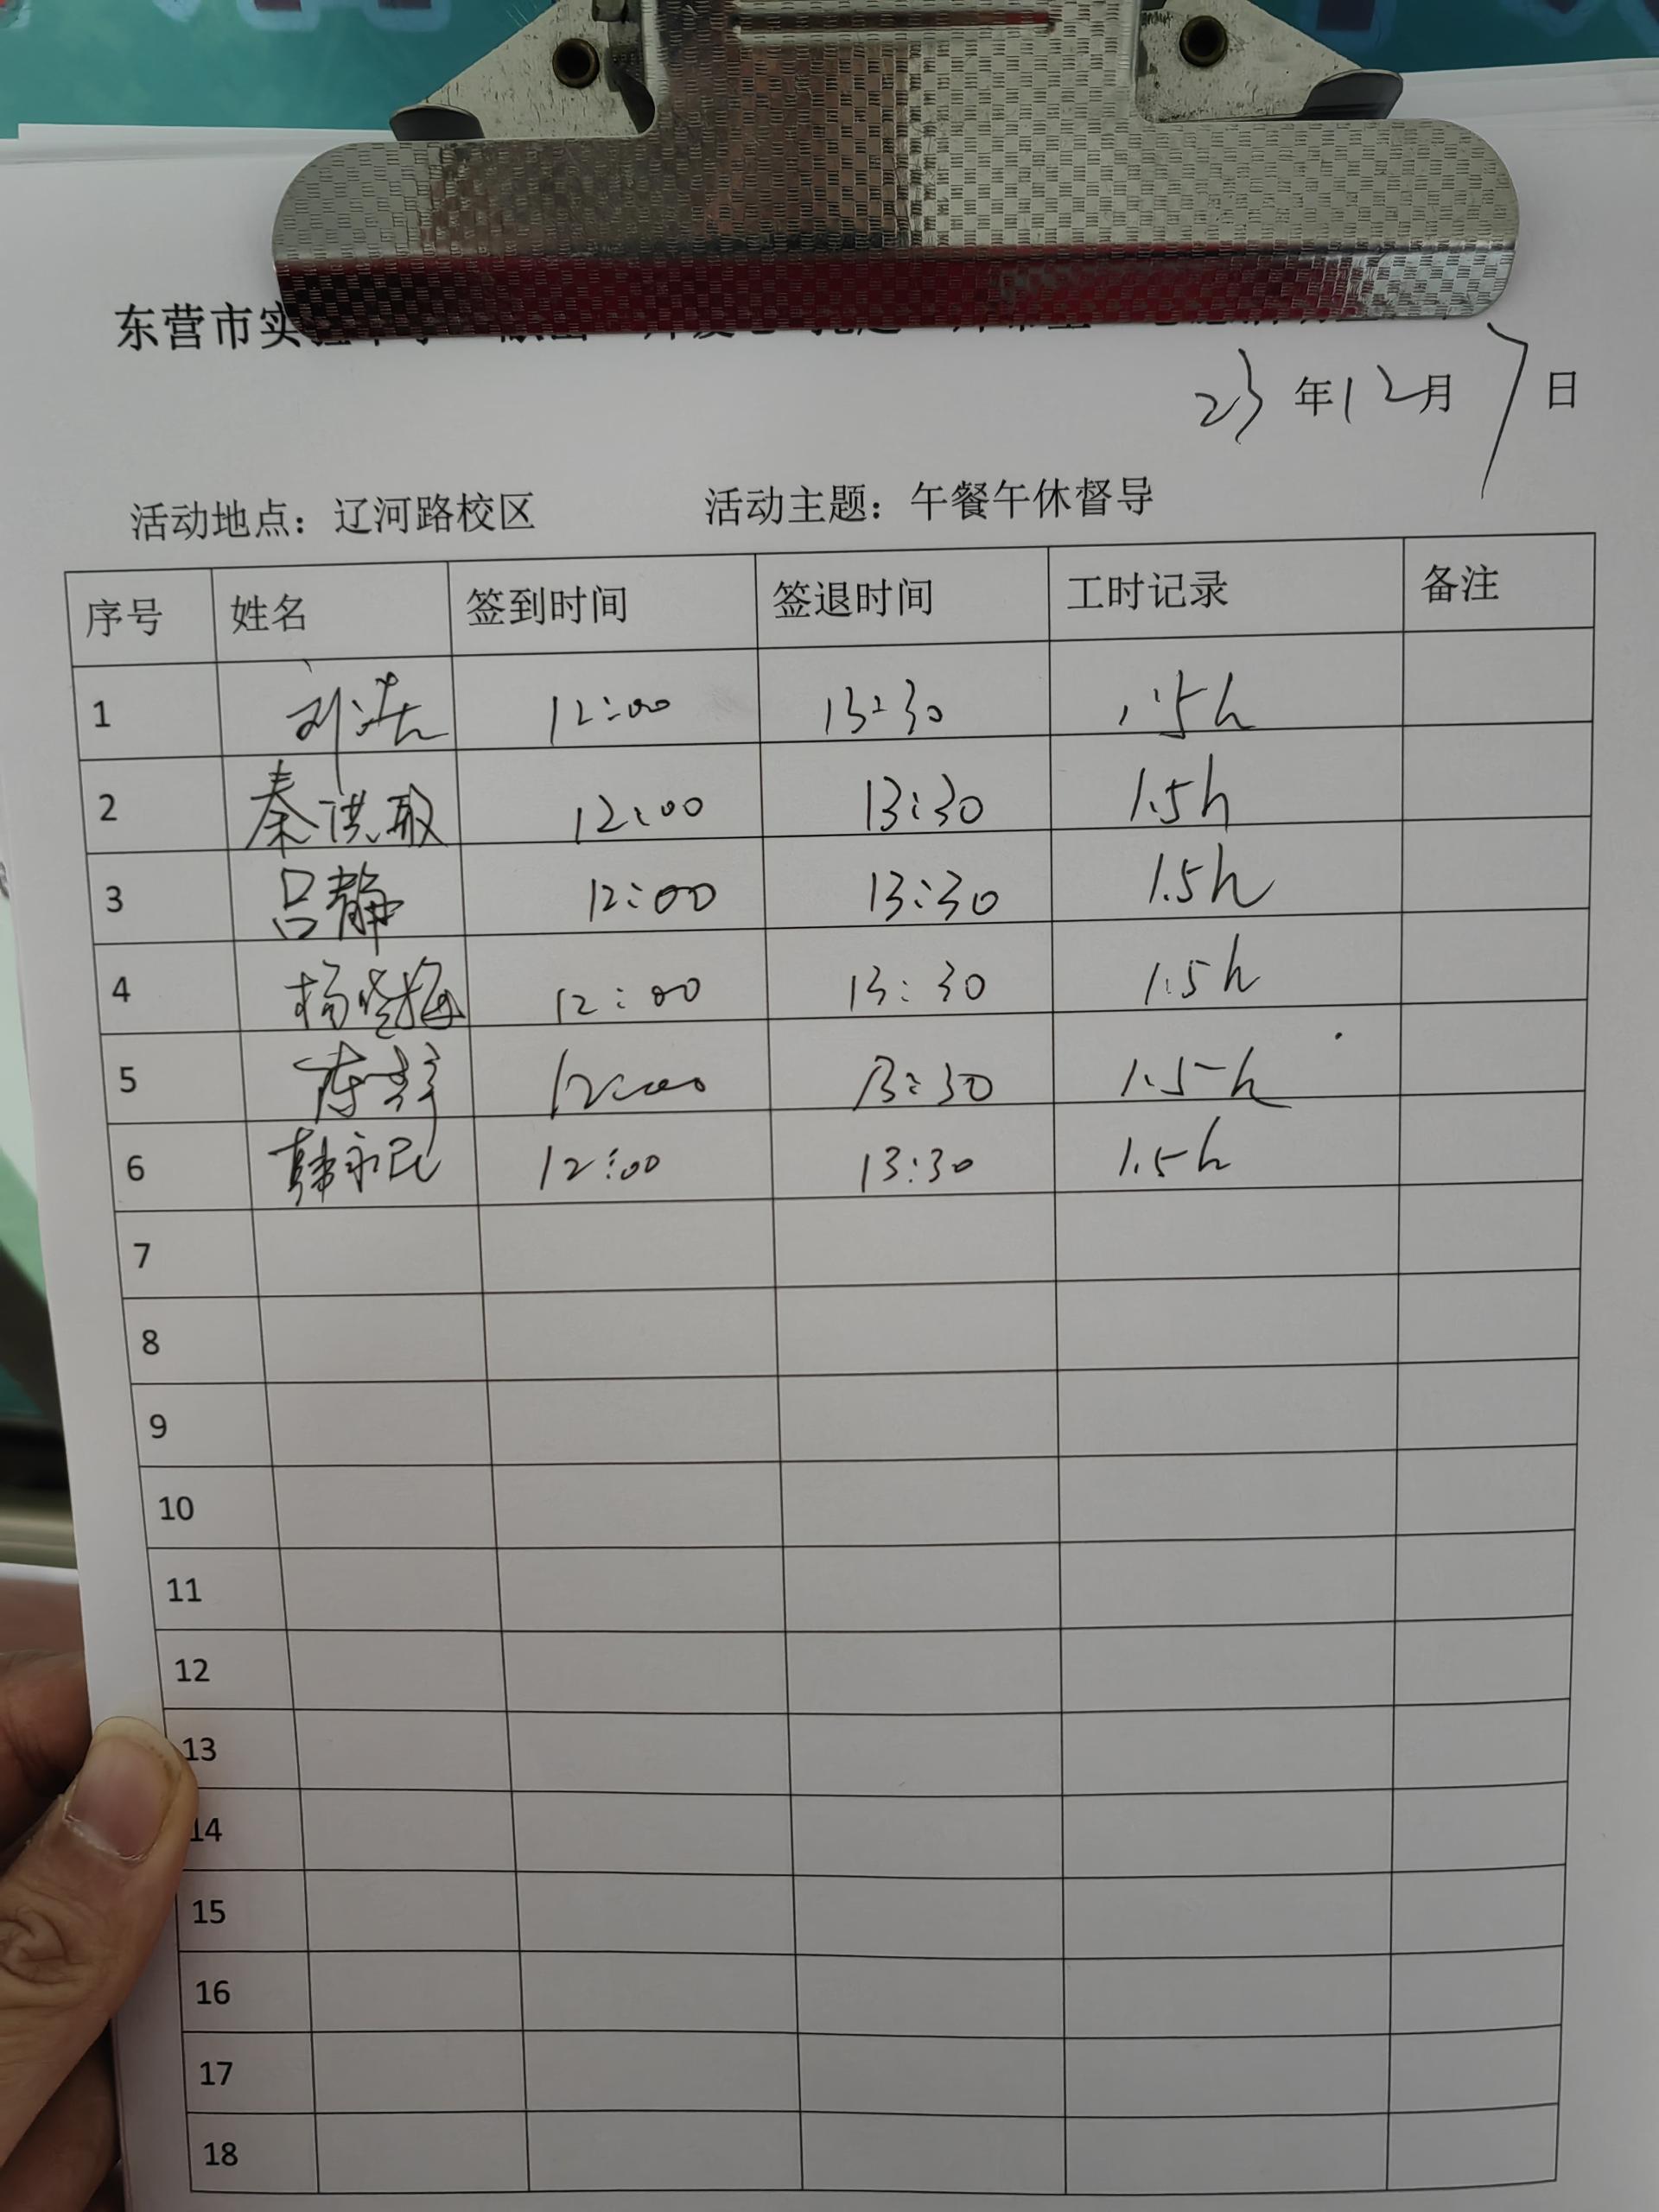 东营市实
23年12月7日
活动地点：辽河路校区 活动主题：午餐午休督导
序号 姓名 签到时间 签退时间 工时记录 备注
1 刘 12:00 13:30 1.5h
2 秦洪 12:00 13:30 1.5h
3 吕静 12:00 13:30 1.5h
4 杨 梅 12:00 13:30 1.5h
5 12:00 13:30 1.5h
6 韩永民 12:00 13:30 1.5h
7
8
9
10
11
12
13
14
15
16
17
18